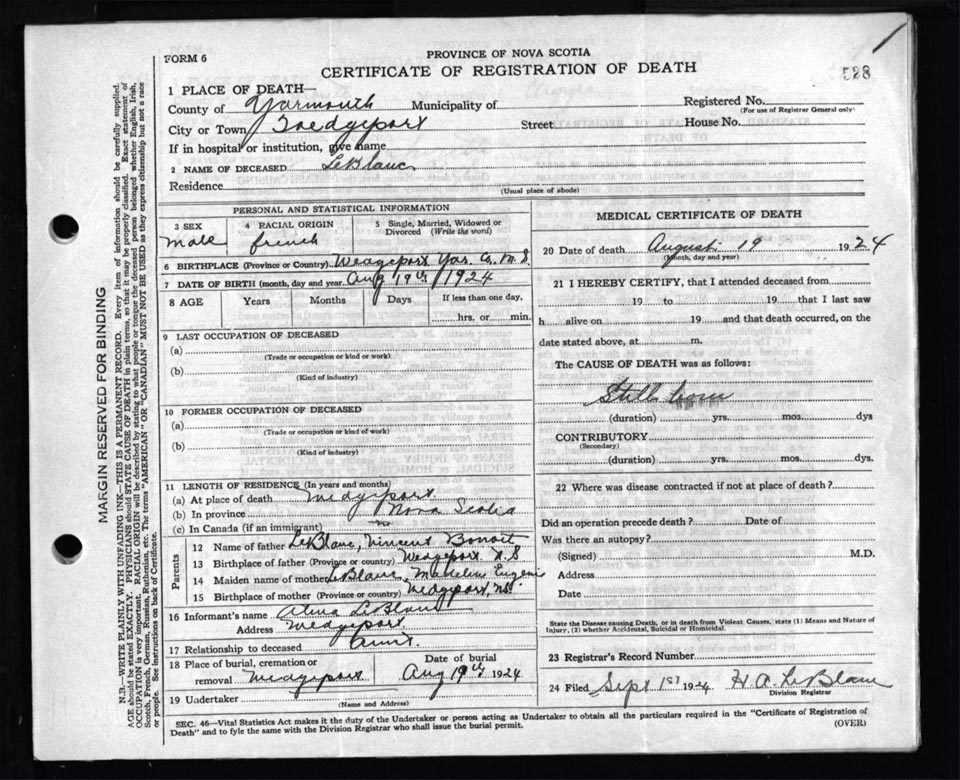 FORM 6
PROVINCE OF NOVA SCOTIA
CERTIFICATE OF REGISTRATION OF DEATH
528
1 PLACE OF DEATH—
County of Yarmouth Municipality of
Registered No.
(For use of Registrar General only)
City or Town Wedgeport Street House No.
If in hospital or institution, give name
2 NAME OF DECEASED LeBlanc
Residence
(Usual place of abode)
PERSONAL AND STATISTICAL INFORMATION
3 SEX
male
4 RACIAL ORIGIN
french
5 Single, Married, Widowed or Divorced (Write the word)
6 BIRTHPLACE (Province or Country) Wedgeport Yar. Co. N.S.
7 DATE OF BIRTH (month, day and year) Aug 19th 1924
8 AGE Years Months Days If less than one day,
hrs. or min.
9 LAST OCCUPATION OF DECEASED
(a)
(Trade or occupation or kind or work)
(b)
(Kind of industry)
10 FORMER OCCUPATION OF DECEASED
(a)
(Trade or occupation or kind of work)
(b)
(Kind of industry)
11 LENGTH OF RESIDENCE (In years and months)
(a) At place of death Wedgeport
(b) In province Nova Scotia
(c) In Canada (if an immigrant)
Parents
12 Name of father LeBlanc, Vincent Benoit
13 Birthplace of father (Province or country) Wedgeport N.S
14 Maiden name of mother LeBlanc, Eugenie
15 Birthplace of mother (Province or country) Wedgeport, NS.
16 Informant's name LeBlanc
Address Wedgeport
17 Relationship to deceased Aunt
18 Place of burial, cremation or removal Wedgeport
Date of burial
Aug 19th 1924
19 Undertaker
(Name and Address)
MEDICAL CERTIFICATE OF DEATH
20 Date of death August 19 1924
(Month, day and year)
21 I HEREBY CERTIFY, that I attended deceased from
19 to 19 that I last saw
h alive on 19 and that death occurred, on the
date stated above, at m.
The CAUSE OF DEATH was as follows:
Still born
(duration) yrs. mos. dys
CONTRIBUTORY
(Secondary)
(duration) yrs. mos. dys.
22 Where was disease contracted if not at place of death?
Did an operation precede death? Date of
Was there an autopsy?
(Signed) M.D.
Address
Date
State the Disease causing Death, or in death from Violent Causes, state (1) Means and Nature of
Injury, (2) whether Accidental, Suicidal or Homicidal.
23 Registrar's Record Number
24 Filed Sept 1st 1924 H. A. LeBlanc
Division Registrar
SEC. 46—Vital Statistics Act makes it the duty of the Undertaker or person acting as Undertaker to obtain all the particulars required in the "Certificate of Registration of
Death" and to fyle the same with the Division Registrar who shall issue the burial permit.
(OVER)
MARGIN RESERVED FOR BINDING
N.B.—WRITE PLAINLY WITH UNFADING INK—THIS IS A PERMANENT RECORD. Every item of information should be carefully supplied.
AGE should be stated EXACTLY. PHYSICIANS should STATE CAUSE OF DEATH in plain terms, so that it may be properly classified. Exact statement of
OCCUPATION is very important. RACIAL ORIGIN will be described by stating to what people or tongue the deceased person belonged whether English, Irish,
Scotch, French, German, Russian, Ruthenian, etc. The terms "AMERICAN" OR "CANADIAN" MUST NOT BE USED as they express citizenship but not a race
or people. See instructions on back of Certificate.